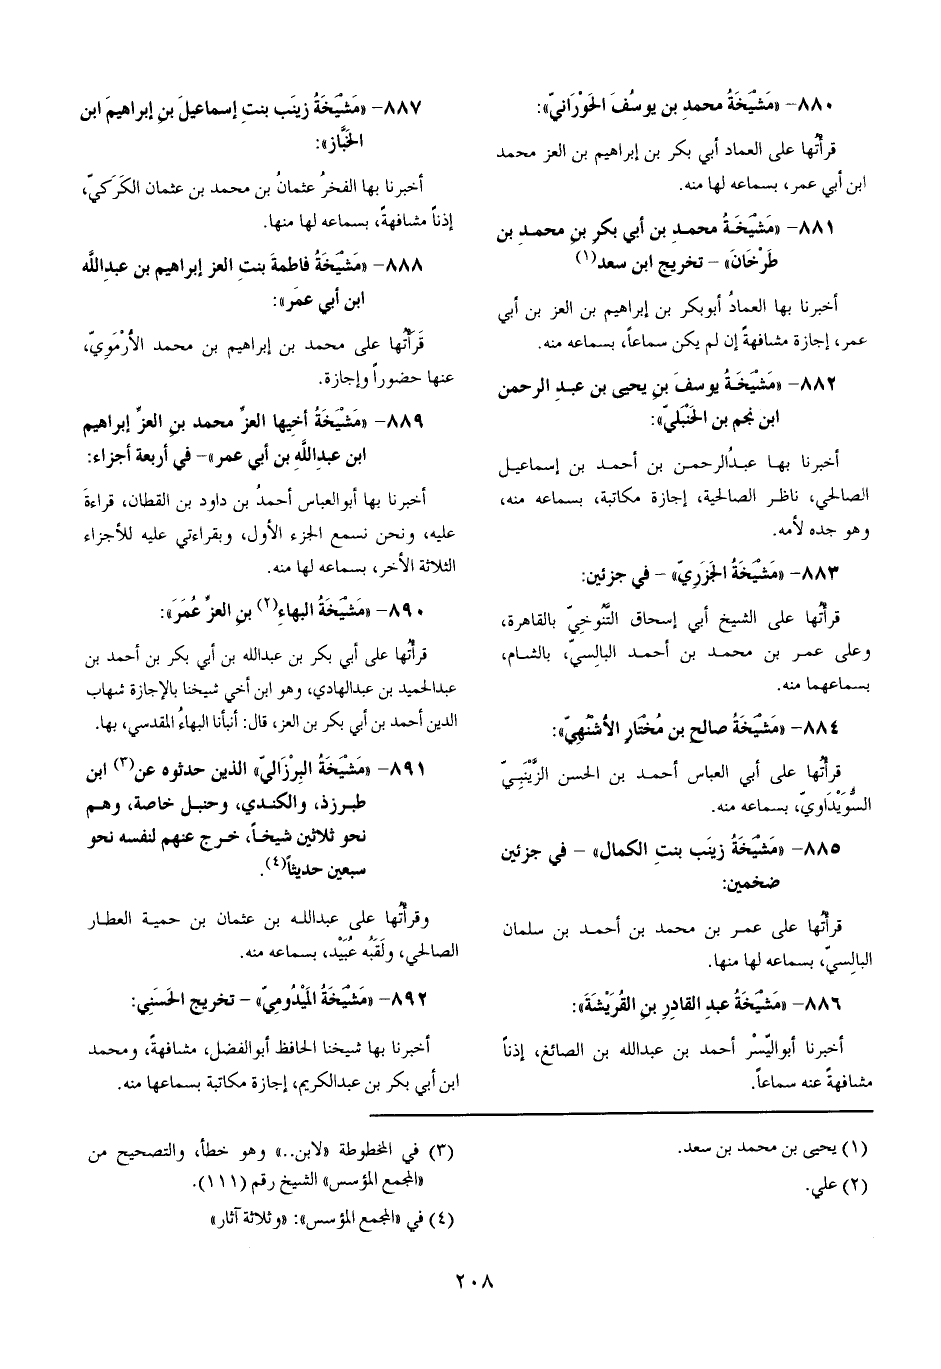 ٨٨٠- «مَشْيَخَةُ محمد بن يوسُفَ الحَوْرَانيّ»:
قرأتُها على العماد أبي بكر بن إبراهيم بن العز محمد
ابن أبي عمر، بسماعه لها منه.
٨٨١- «مَشْيَخَةُ محمدِ بن أبي بكرِ بنِ محمدِ بن
طَرْخَانَ» - تخريج ابن سعد(١)
أخبرنا بها العمادُ أبوبكر بن إبراهيم بن العز بن أبي
عمر، إجازة مشافهةً إن لم يكن سماعاً، بسماعه منه.
٨٨٢- «مَشْيَخَةُ يوسفَ بنِ يحيى بن عبدِ الرحمن
ابن نجم بن الحَنْبَليّ»:
أخبرنا بها عبدُالرحمن بن أحمد بن إسماعيل
الصالحي، ناظر الصالحية، إجازة مكاتبة، بسماعه منه،
وهو جده لأمه.
٨٨٣- «مَشْيَخَةُ الجَزَرِيّ» - في جزئين:
قرأتُها على الشيخ أبي إسحاق التَّنُوخيّ بالقاهرة،
وعلى عمر بن محمد بن أحمد البالِسيّ، بالشام،
بسماعهما منه.
٨٨٤- «مَشْيَخَةُ صالح بن مُختَارٍ الأشْنُهِيّ»:
قرأتُها على أبي العباس أحمد بن الحسن الزَّيْنَبِيّ
السُّوَيْدَاويّ، بسماعه منه.
٨٨٥- «مَشْيَخَةُ زينَب بنتِ الكمال» - في جزئين
ضخمين:
قرأتُها على عمر بن محمد بن أحمد بن سلمان
البالِسيّ، بسماعه لها منها.
٨٨٦- «مَشْيَخَةُ عبدِ القادرِ بنِ القُرَيْشَةَ»:
أخبرنا أبواليّسْر أحمد بن عبدالله بن الصائغ، إذناً
مشافهةً عنه سماعاً.
٨٨٧- «مَشْيَخَةُ زينَب بنتِ إسماعيلَ بنِ إبراهيمَ ابن
الخَبَّاز»:
أخبرنا بها الفخرُ عثمانُ بن محمد بن عثمان الكَرَكيّ،
إذناً مشافهةً، بسماعه لها منها.
٨٨٨- «مَشْيَخَةُ فاطمةَ بنتِ العز إبراهيم بن عبدِاللَّه
ابن أبي عمَر»:
قَرَأتُها على محمد بن إبراهيم بن محمد الأرْمَويّ،
عنها حضوراً وإجازة.
٨٨٩- «مَشْيَخَةُ أخيها العزِّ محمد بنِ العزِّ إبراهيم
ابن عبداللَّه بن أبي عمر»- في أربعة أجزاء:
أخبرنا بها أبوالعباس أحمدُ بن داود بن القطان، قراءةَ
عليه، ونحن نسمع الجزء الأول، وبقراءتي عليه للأجزاء
الثلاثة الأخر، بسماعه لها منه.
٨٩٠- «مَشْيَخَةُ البهاءِ(٢) بنِ العزِّ عُمَرَ»:
قرأتُها على أبي بكر بن عبدالله بن أبي بكر بن أحمد بن
عبدالحميد بن عبدالهادي، وهو ابن أخي شيخنا بالإجازة شهاب
الدين أحمد بن أبي بكر بن العز، قال: أنبأنا البهاءُ المقدسي، بها.
٨٩١- «مَشْيَخَةُ البِرْزَاليّ» الذين حدثوه عن(٣) ابن
طبرزذ، والكندي، وحنبل خاصة، وهم
نحو ثلاثين شيخاً، خرج عنهم لنفسه نحو
سبعين حديثاً(٤).
وقرأتُها على عبدالله بن عثمان بن حمية العطار
الصالحي، ولَقَبُه عُبَيْد، بسماعه منه.
٨٩٢- «مَشْيَخَةُ المَيْدُوميّ» - تخريج الحَسَنِي:
أخبرنا بها شيخنا الحافظ أبوالفضل، مشافهةً، ومحمد
ابن أبي بكر بن عبدالكريم، إجازة مكاتبة بسماعها منه.
(١) يحيى بن محمد بن سعد.
(٢) علي.
(٣) في المخطوطة «لابن..» وهو خطأ، والتصحيح من
«المجمع المؤسس» الشيخ رقم (١١١).
(٤) في «المجمع المؤسس»: «وثلاثة آثار»
٢٠٨